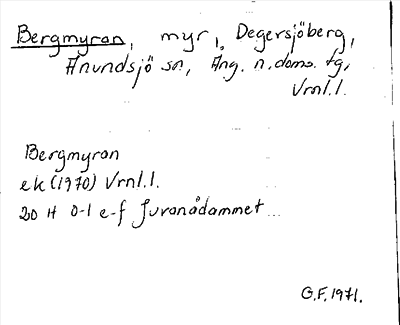 Bergmyran, myr, Degersjöberg,
Anundsjö sn, Ång. n. doms. tg,
Vrnl.l.
Bergmyran
ek (1970) Vrnl.l.
20 H 0-1 e-f Juranådammet
G.F. 1971.